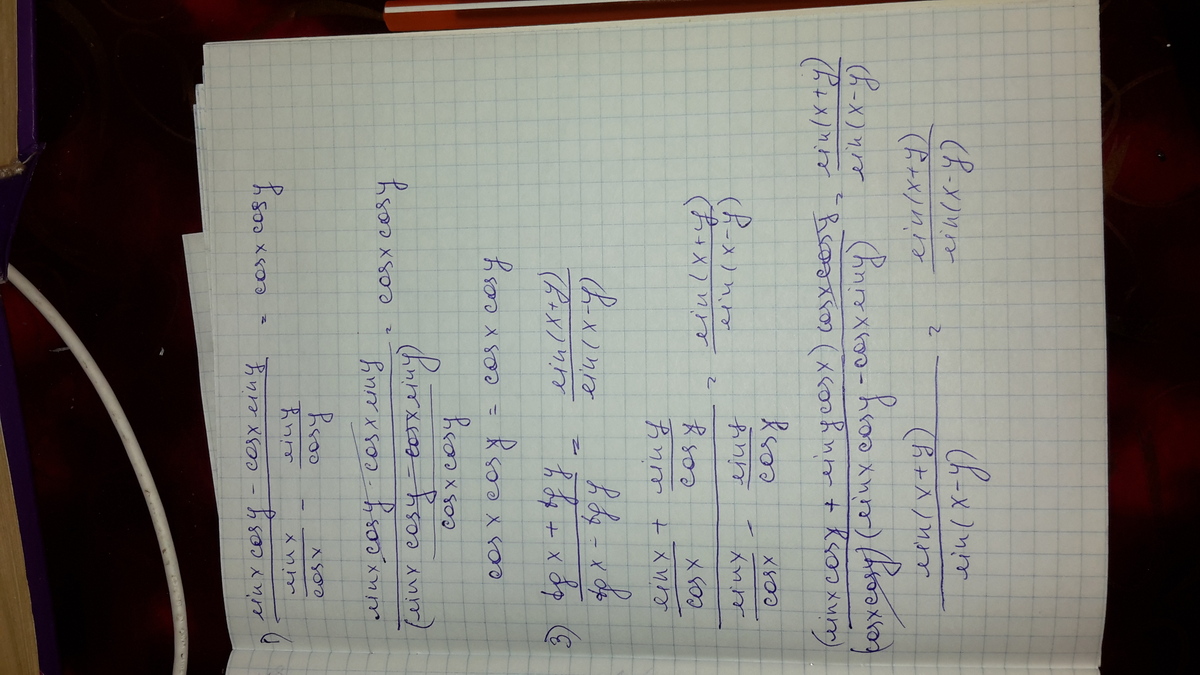 1) (sin x cos y - cos x sin y) / (sin x / cos x - sin y / cos y) = cos x cos y
(sin x cos y - cos x sin y) / ((sin x cos y - cos x sin y) / cos x cos y) = cos x cos y
cos x cos y = cos x cos y
3) (tg x + tg y) / (tg x - tg y) = sin(x+y) / sin(x-y)
(sin x / cos x + sin y / cos y) / (sin x / cos x - sin y / cos y) = sin(x+y) / sin(x-y)
(sin x cos y + sin y cos x) cos x cos y / (cos x cos y)(sin x cos y - cos x sin y) = sin(x+y) / sin(x-y)
sin(x+y) / sin(x-y) = sin(x+y) / sin(x-y)